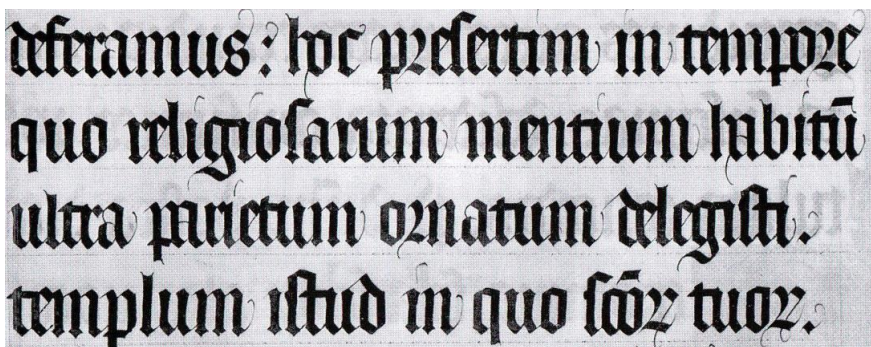 deferamus: hoc presertim in tempore
quo religiosarum mentium habitū
ultra parietum ornatum delegisti.
templum istud in quo scōꝝ tuoꝝ.